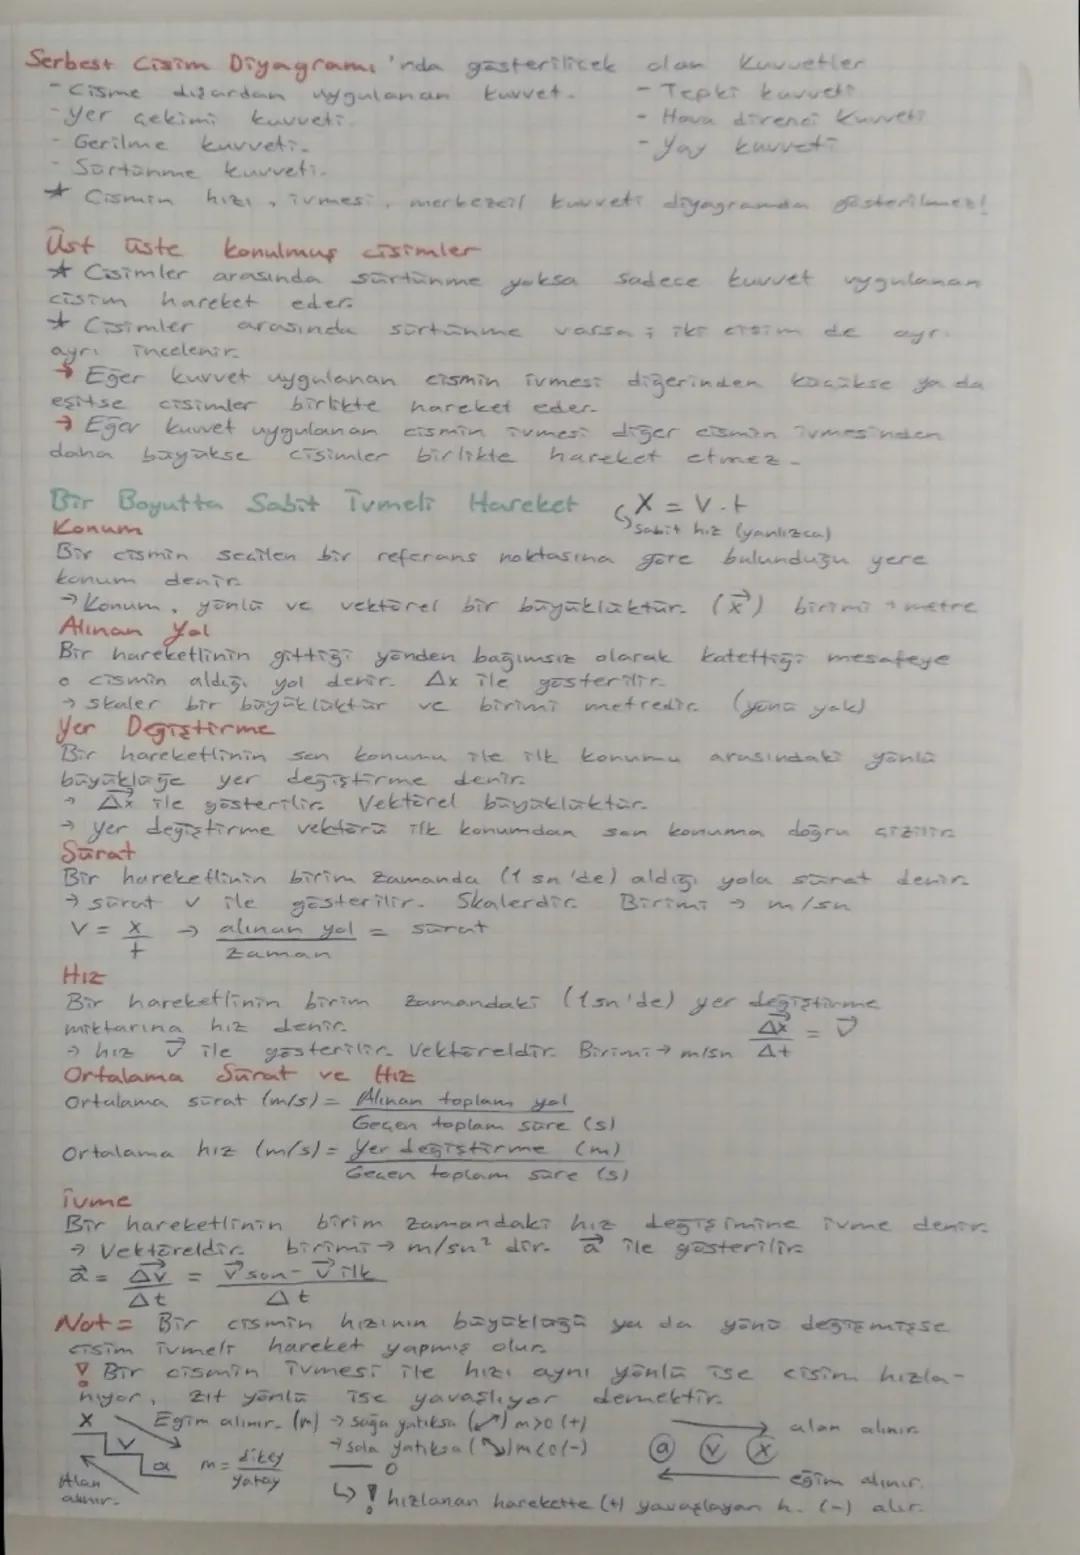 Serbest Cisim Diyagramı 'nda gösterilicek olan Kuvvetler
- Cisme dışardan uygulanan kuvvet.
- Tepki kuvveti
- Yer çekimi kuvveti.
- Hava direnci kuvveti
- Gerilme kuvveti.
- Yay kuvveti
- Sürtünme kuvveti.
* Cismin hızı, ivmesi, merkezcil kuvveti diyagramda gösterilmez!
Üst üste konulmuş cisimler
* Cisimler arasında sürtünme yoksa sadece kuvvet uygulanan
cisim hareket eder.
* Cisimler arasında sürtünme varsa ; iki cisim de ayrı
ayrı incelenir.
→ Eğer kuvvet uygulanan cismin ivmesi diğerinden küçükse ya da
eşitse cisimler birlikte hareket eder.
→ Eğer kuvvet uygulanan cismin ivmesi diğer cismin ivmesinden
daha büyükse cisimler birlikte hareket etmez.
Bir Boyutta Sabit İvmeli Hareket X = V.t
Sabit hız (yanlızca)
Konum
Bir cismin seçilen bir referans noktasına göre bulunduğu yere
konum denir.
→ Konum, yönlü ve vektörel bir büyüklüktür. (x⃗) birimi → metre
Alınan Yol
Bir hareketlinin gittiği yönden bağımsız olarak katettiği mesafeye
o cismin aldığı yol denir. Δx ile gösterilir.
→ Skaler bir büyüklüktür ve birimi metredir. (yönü yok)
Yer Değiştirme
Bir hareketlinin son konumu ile ilk konumu arasındaki yönlü
büyüklüğe yer değiştirme denir.
→ Δx⃗ ile gösterilir. Vektörel büyüklüktür.
→ Yer değiştirme vektörü ilk konumdan son konuma doğru çizilir.
Sürat
Bir hareketlinin birim zamanda (1 sn'de) aldığı yola sürat denir.
→ sürat v ile gösterilir. Skalerdir. Birimi → m/sn
V = X/t → alınan yol/zaman = sürat
Hız
Bir hareketlinin birim zamandaki (1sn'de) yer değiştirme
miktarına hız denir. Δx⃗/Δt = V⃗
→ hız V⃗ ile gösterilir. Vektöreldir. Birimi → m/sn
Ortalama Sürat ve Hız
Ortalama sürat (m/s) = Alınan toplam yol/Geçen toplam süre (s)
Ortalama hız (m/s) = Yer değiştirme (m)/Geçen toplam süre (s)
İvme
Bir hareketlinin birim zamandaki hız değişimine ivme denir.
→ Vektöreldir. birimi → m/sn² dir. a⃗ ile gösterilir.
a⃗ = ΔV⃗/Δt = V⃗son - V⃗ilk/Δt
Not = Bir cismin hızının büyüklüğü ya da yönü değişmişse
cisim ivmeli hareket yapmış olur.
! Bir cismin ivmesi ile hızı aynı yönlü ise cisim hızla-
nıyor, zıt yönlü ise yavaşlıyor demektir.
X V a
Eğim alınır. (m) → Sağa yatıksa (↗) m>0 (+)
→ Sola yatıksa (↘) m<0 (-)
— 0
m = dikey/yatay
Alan
alınır.
alan alınır.
a v x
eğim alınır.
↳ ! hızlanan harekette (+) yavaşlayan h. (-) alır.